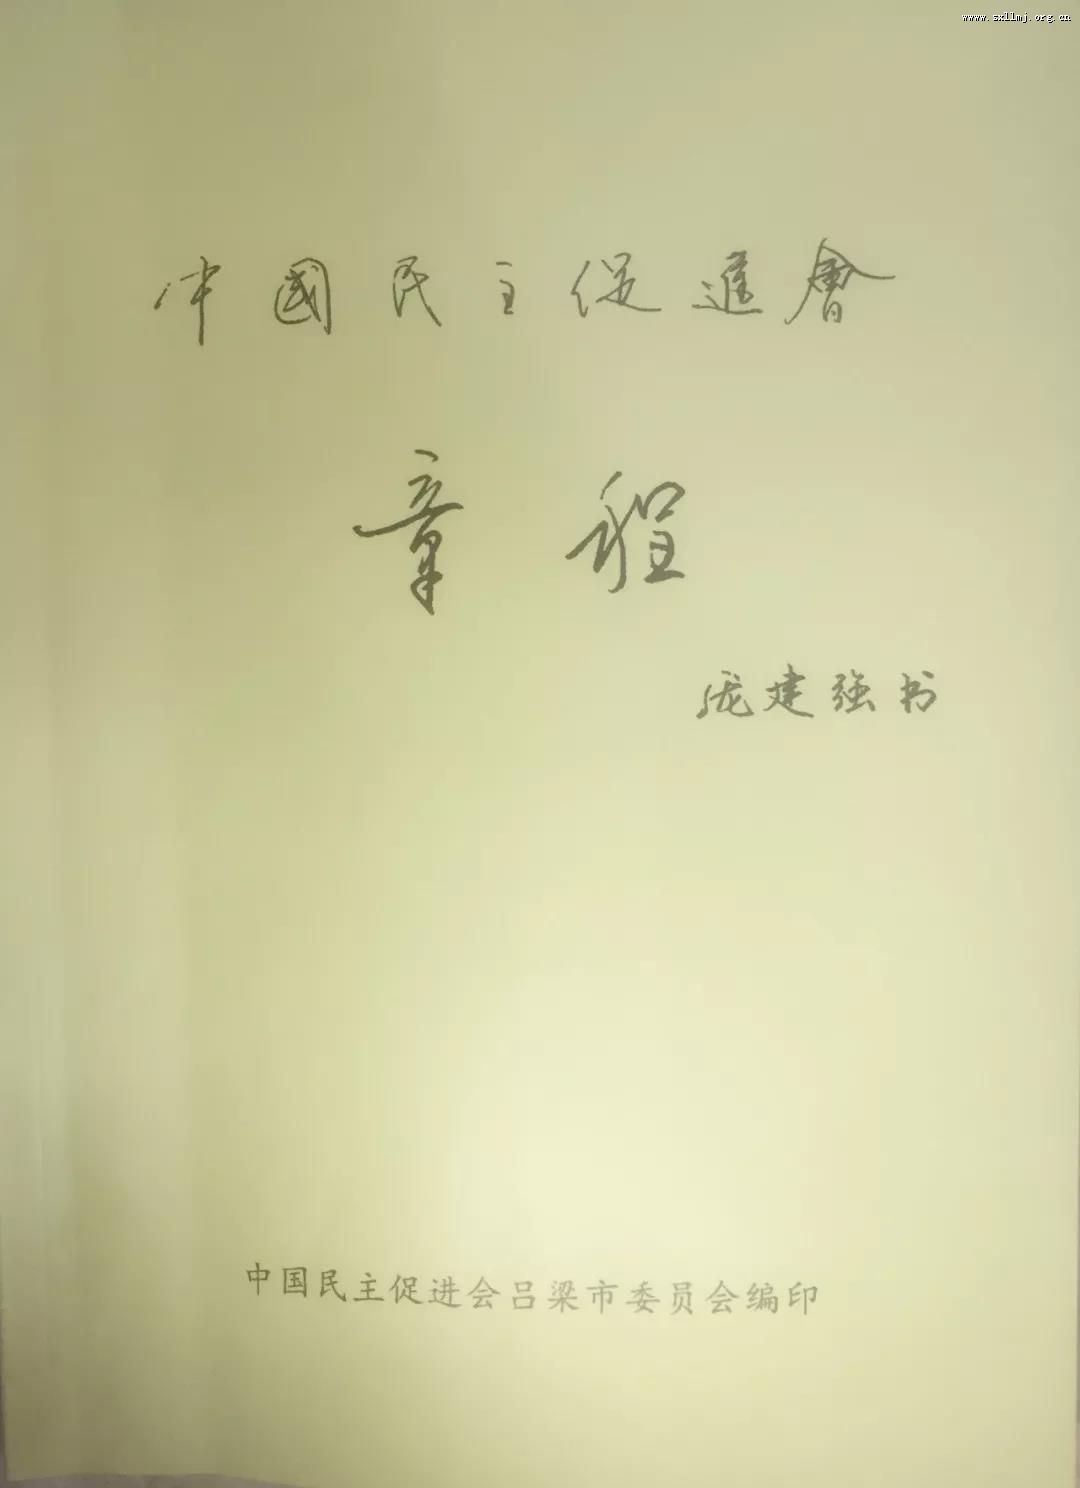 www.sxllmj.org.cn
中國民主促進會
章程
庞建强书
中国民主促进会吕梁市委员会编印